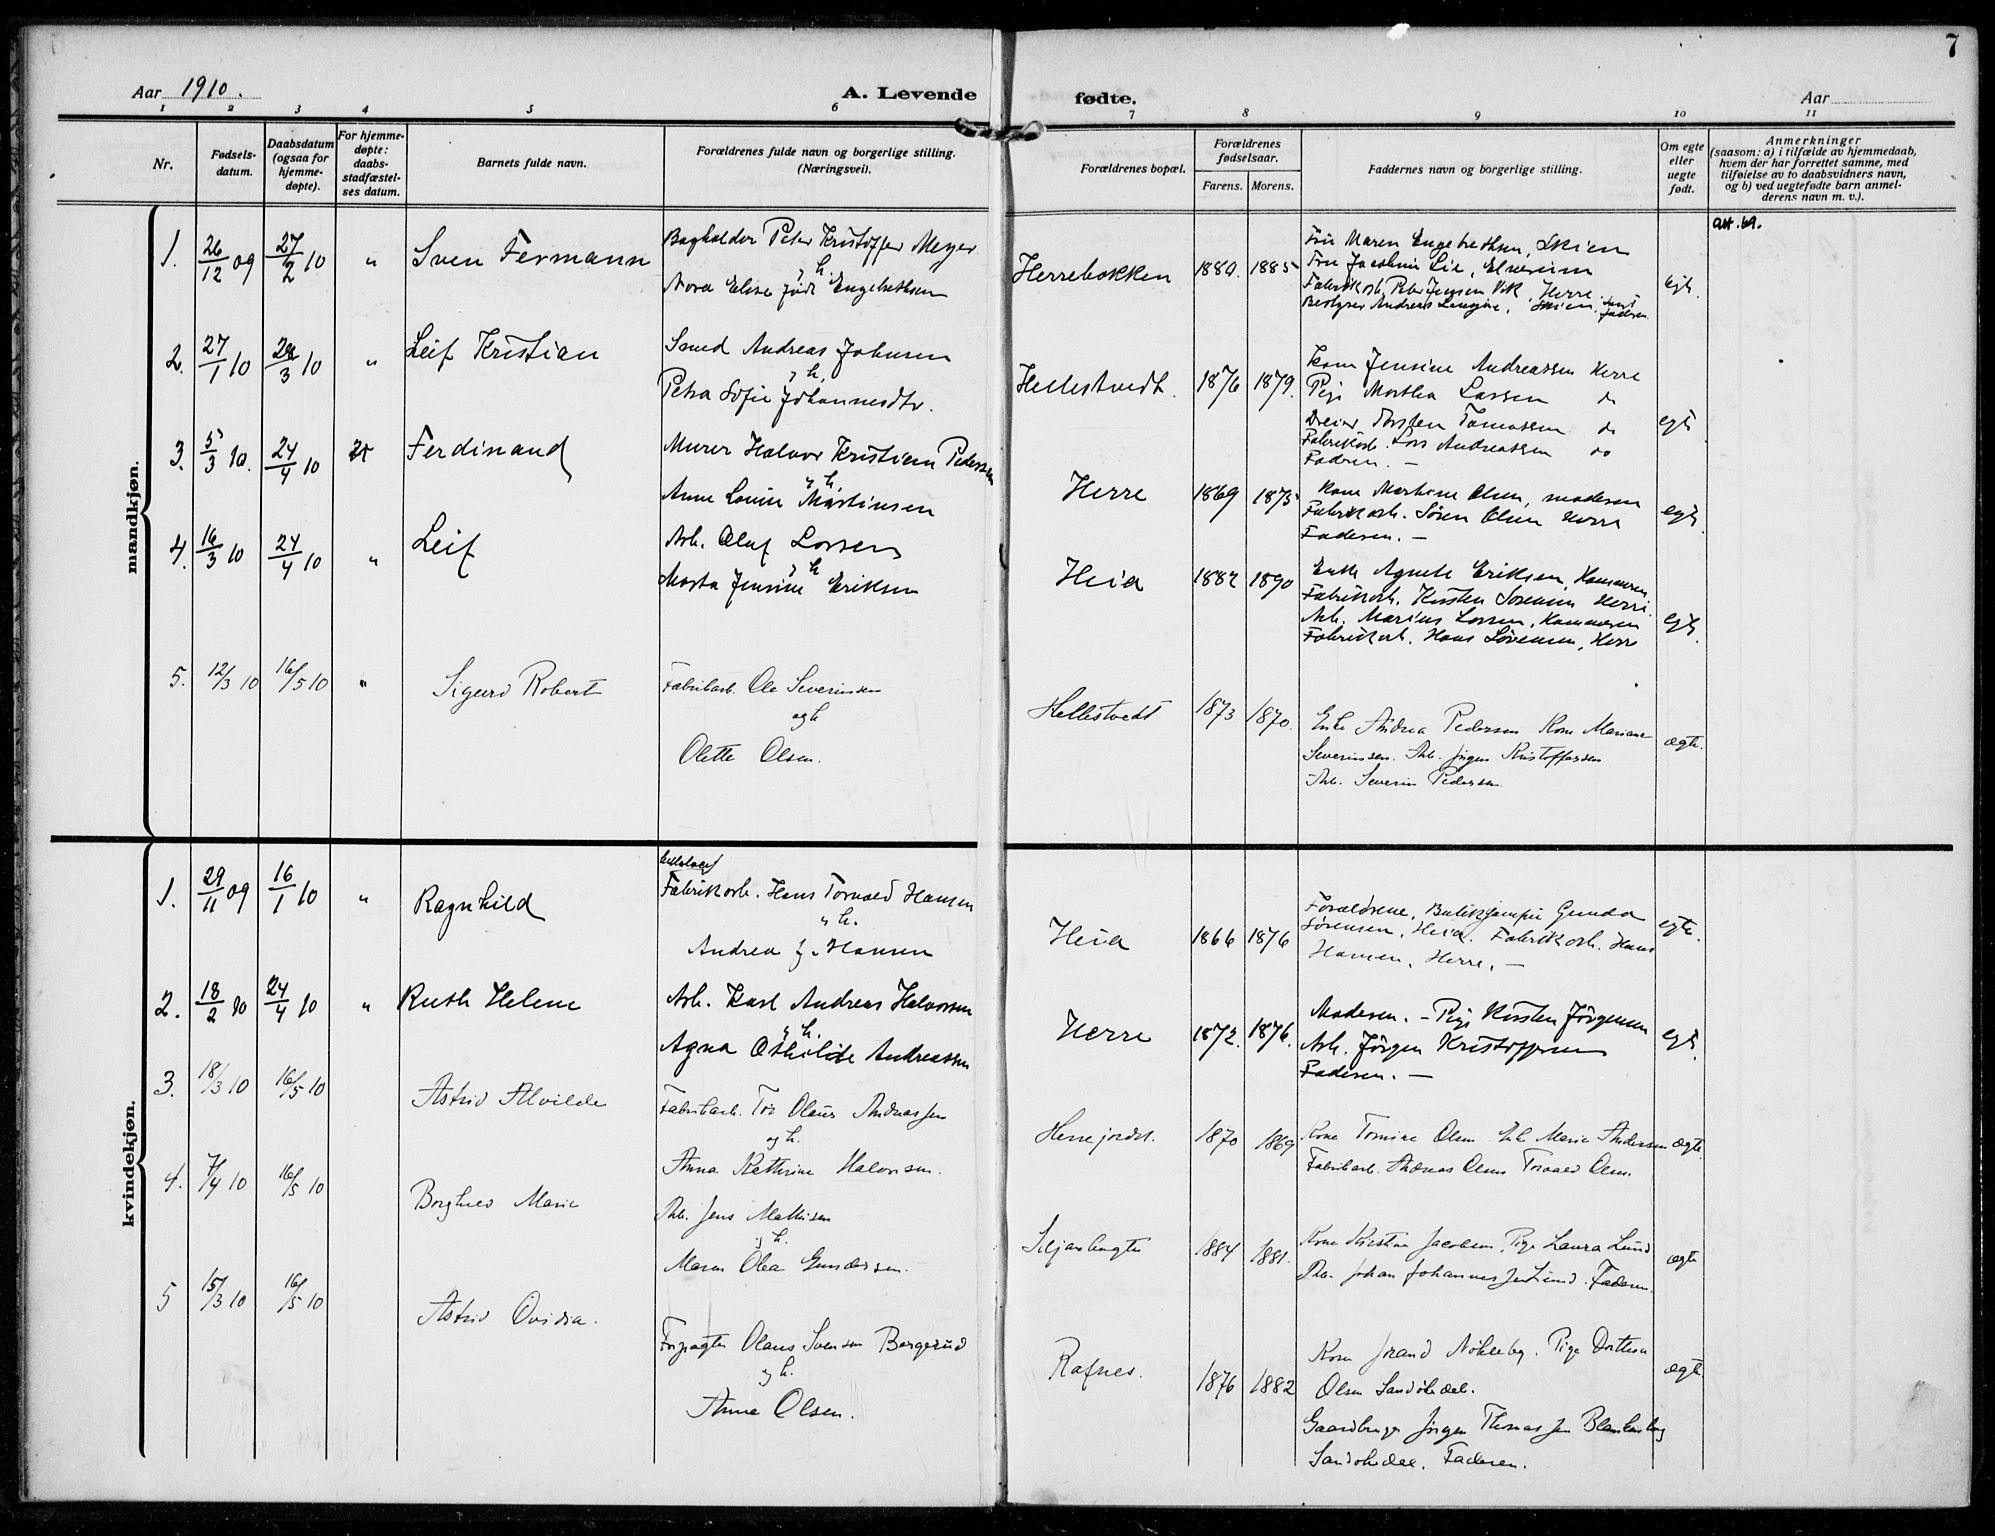 7
Aar 1910.
A. Levende
fødte.
Aar
1 2 3 4 5 6 7 8 9 10 11
Nr.
Fødsels-
datum.
Daabsdatum
(ogsaa for
hjemme-
døpte).
For hjemme-
døpte:
daabs-
stadfæstel-
ses datum.
Barnets fulde navn.
Forældrenes fulde navn og borgerlige stilling.
(Næringsvei).
Forældrenes bopæl.
Forældrenes
fødselsaar.
Farens. Morens.
Faddernes navn og borgerlige stilling.
Om egte
eller
uegte
født.
Anmerkninger
(saasom: a) i tilfælde av hjemmedaab,
hvem der har forrettet samme, med
tilføielse av to daabsvidners navn,
og b) ved uegtefødte barn anmel-
derens navn m. v.).
mandkjøn.
1. 26/12 09 27/2 10 " Sven Fermann
Bogholder Peter Kristoffer Meyer
o h.
Nora Elise født Engebrethsen
Herrebakken 1880. 1885
Fru Maren Engebrethsen, Skien
Fru Jacobine Lie, Elverum
Fabrikarb. Peter Jensen Vik, Herre
Bestyrer Andreas Langine, Skien, samt
Faderen
egte.
att. 69.
2. 27/1 10 28/3 10 " Leif Kristian
Smed Andreas Johnsen
o h.
Petra Sofie Johannesdtr.
Hellestvedt. 1876 1879.
Kone Jensine Andreassen Herre
Pige Martha Larsen do
Dreier Torsten Tomassen do
Fabrikarb. Lars Andreassen do
Faderen. —
egte
3. 5/3 10. 24/4 10 Ferdinand
Murer Halvor Kristian Pedersen
o h.
Anne Louise Martinsen
Herre 1869 1875
Kone Martine Olsen, moderen
Fabrikarb. Søren Olsen Herre
Faderen. —
egte
4. 16/3 10 24/4 10 " Leif
Arb. Oluf Larsen
o h
Marta Jensine Eriksen
Heia 1882 1890
Enke Agnete Eriksen, Kammeren
Fabrikarb. Kristen Sørensen Herre
Arb. Marius Larsen, Kammeren
Fabrikarb. Hans Sørensen, Herre
egte.
5. 12/3 10 16/5 10 " Sigurd Robert
Fabrikarb. Ole Severinsen
og h
Olette Olsen.
Hellestvedt 1873 1870.
Enke Andrea Pedersen Kone Mariane
Severinsen. Arb. Jørgen Kristoffersen
Arb. Severin Pedersen.
ægte.
kvindekjøn.
1. 29/11 09 16/1 10 " Ragnhild
Fabrikarb. Hans Torvald Hansen
o h.
Andrea f. Hansen
Heia 1866 1876
Forældrene, Butikjomfru Gunda
Sørensen, Heia. Fabrikarb. Hans
Hansen, Herre. —
egte.
2. 18/2 10 24/4 10 " Ruth Helene
Arb. Karl Andreas Halvorsen
o h.
Agna Othilie Andreassen
Herre 1872. 1876.
Moderen. — Pige Kirsten Jörgensen
Arb. Jörgen Kristoffersen
Faderen. —
egte.
3. 18/3 10 16/5 10 Astrid Alvilde
Fabrikarb. Tor Olaus Andreassen
og h.
Anna Kathrine Halvorsen.
Herrejordet. 1870 1869
Kone Tomine Olsen Enke Marie Andersen
Fabrikarb. Andreas Olsen Torvald Olsen.
ægte.
4. 7/4 10 16/5 10 Borghild Marie
Arb. Jens Mathisen
og h.
Maren Olea Gundersen.
Siljanbugten 1884 1881.
Kone Kirstine Jacobsen, Pige Laura Lund
Arb. Johan Johannessen Lund. Faderen.
ægte
5 15/3 10 16/5 10 Astrid Ovidia.
Forpagter Olaus Svensen Borgerud
og h.
Anne Olsen.
Rafnes. 1876 1882
Kone Jorand Nökleby. Pige Dorthea
Olsen Sandökedal.
Gaardbruger Jörgen Thomassen Blankenborg
Sandökedal. Faderen.
ægte